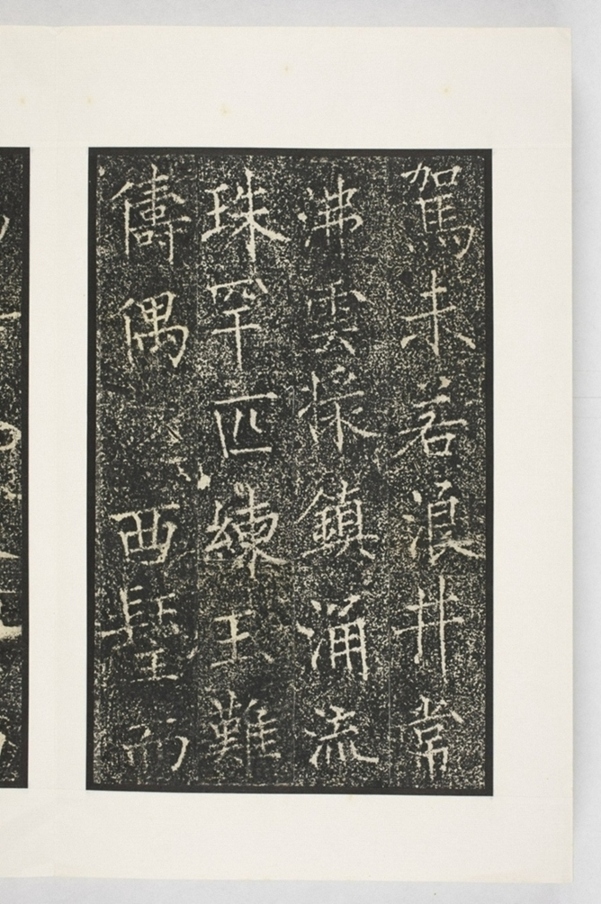 駕未若浪井常
沸雲鎮涌流
珠罕匹練玉難
儔隅西而